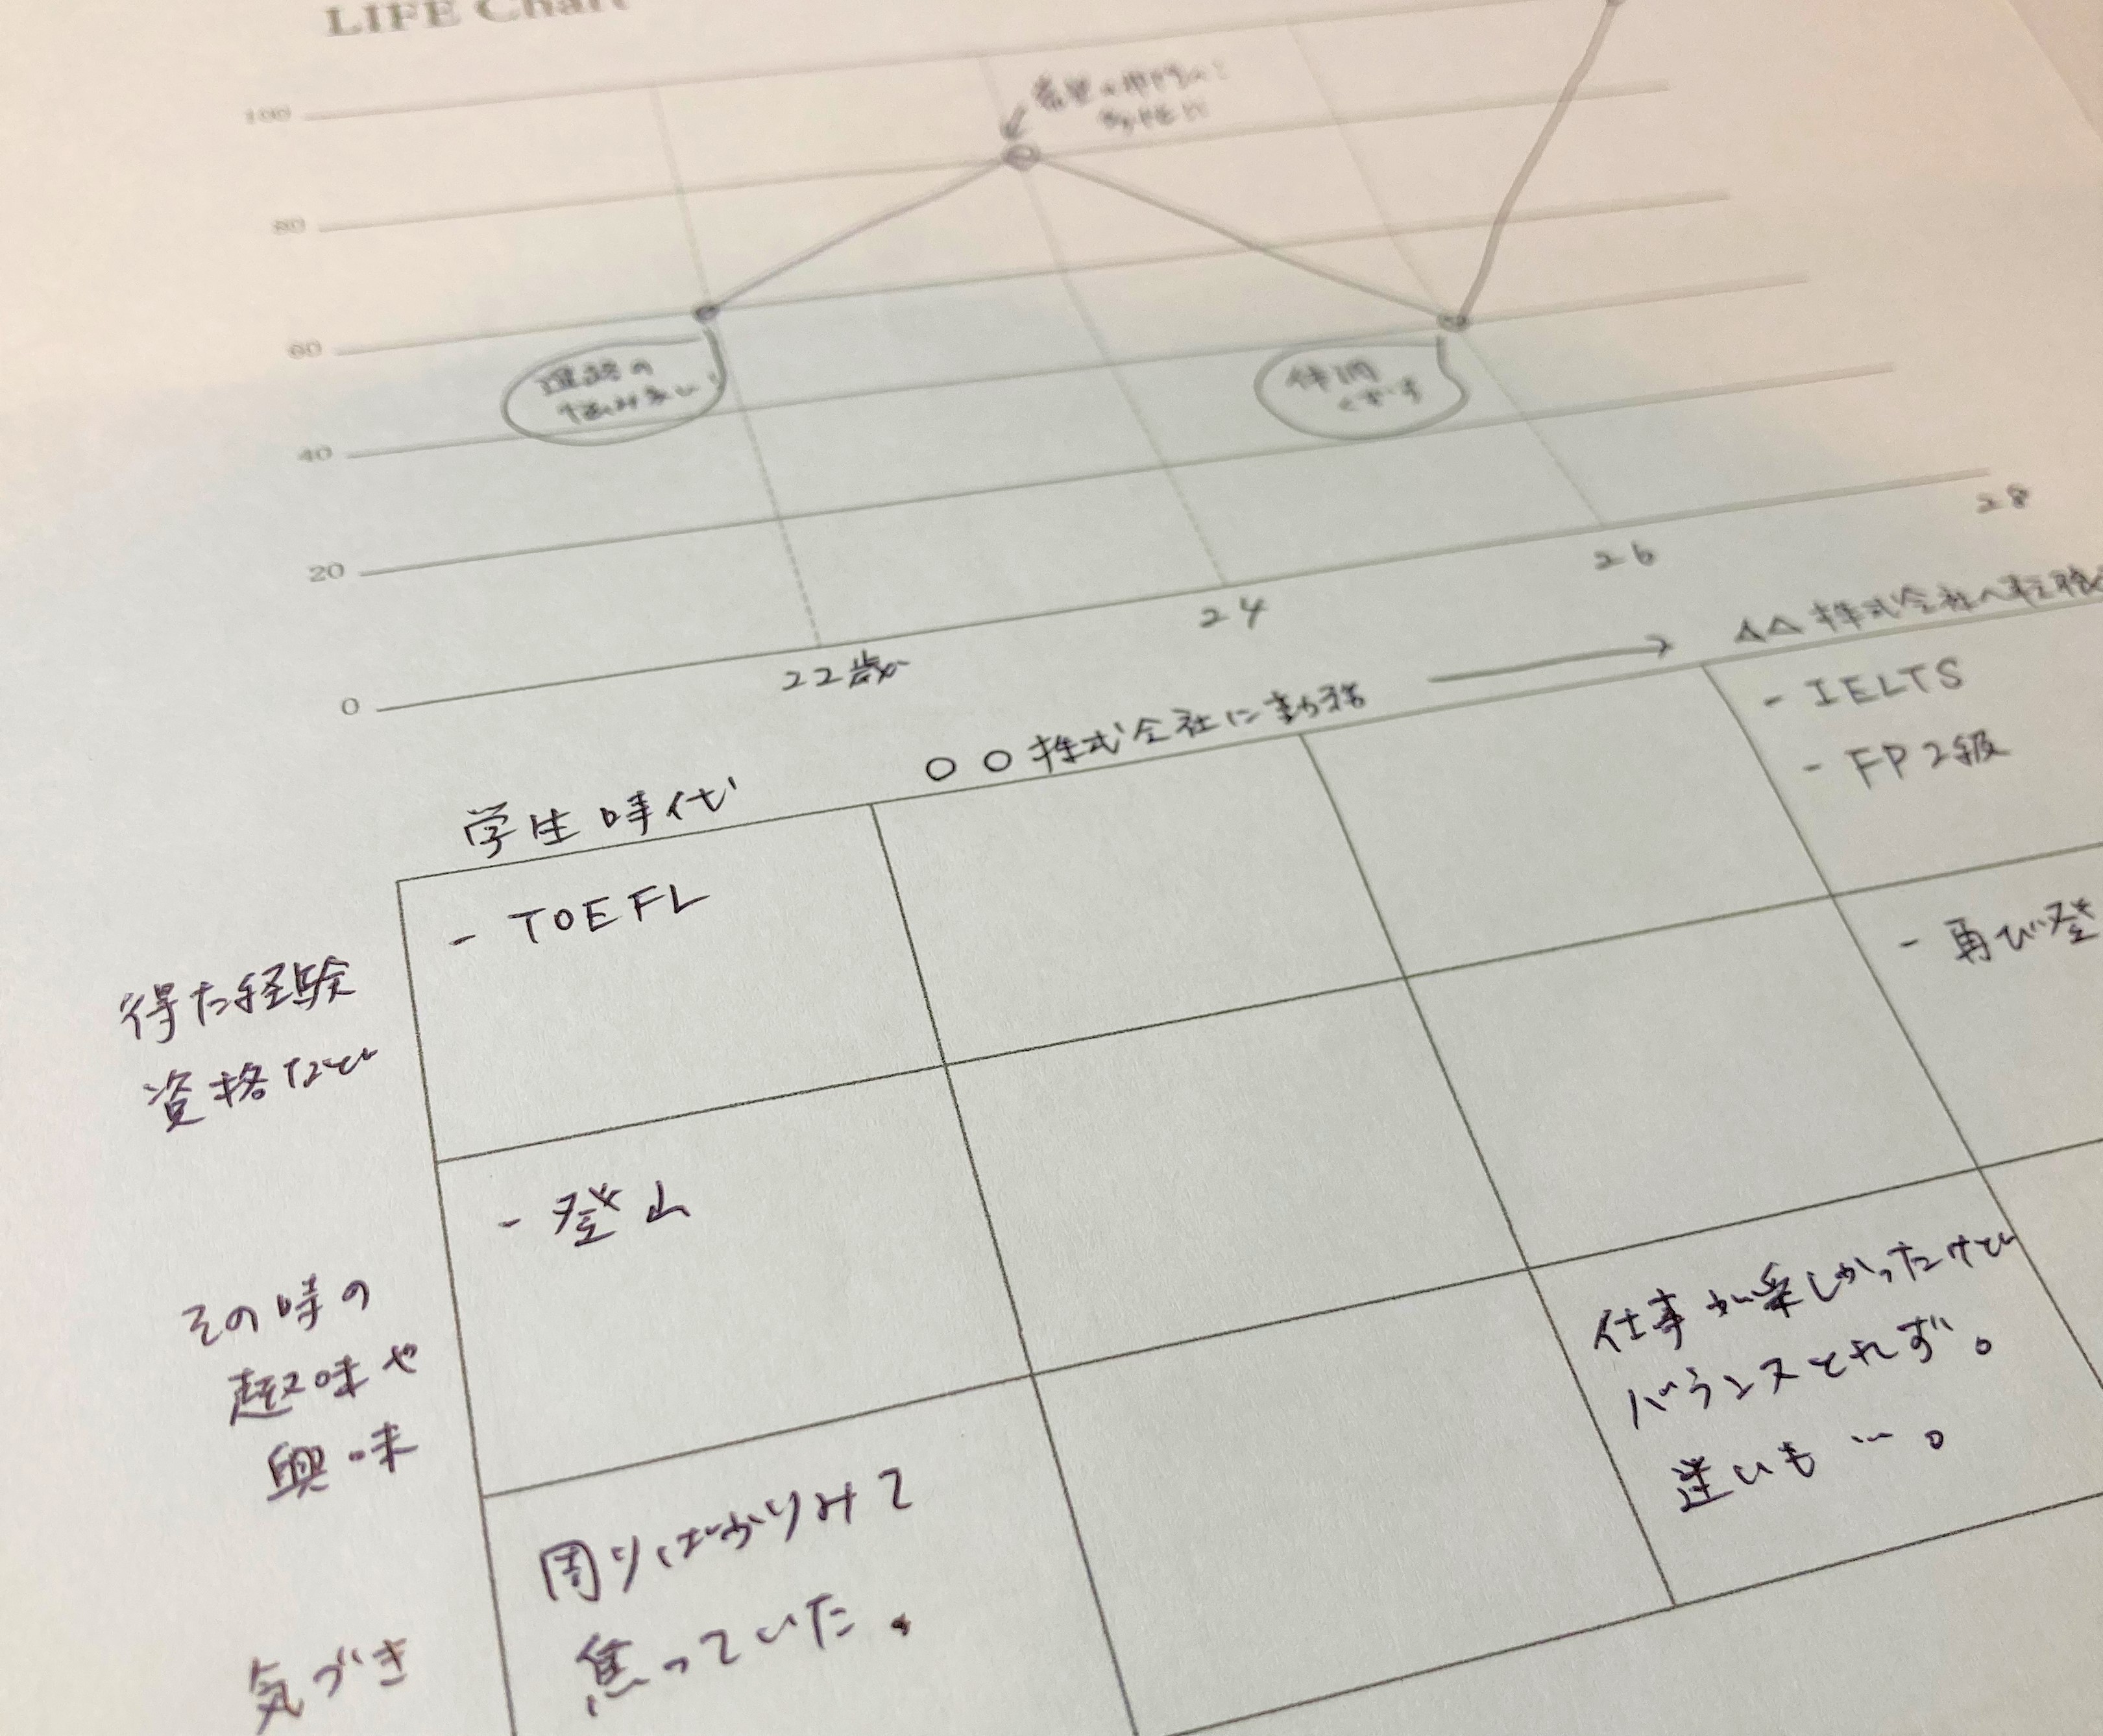 LIFE Chart
100
80
60
40
20
0
進路の
悩み多い
体調
くずす
22歳
24
26
28
学生時代
〇〇株式会社に勤務
→
△△株式会社へ転職
得た経験
資格など
- TOEFL
- IELTS
- FP2級
その時の
趣味や
興味
- 登山
- 再び登
気づき
周りばかりみて
焦っていた.
仕事が楽しかったけど
バランスとれず。
迷いも…。